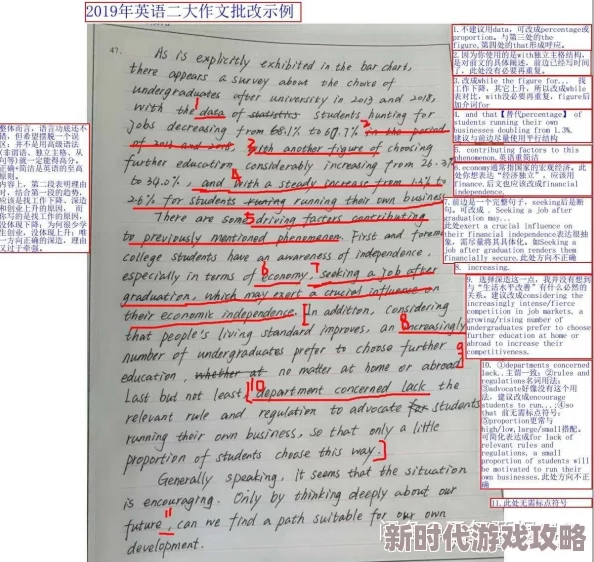 2019年英语二大作文批改示例
47.
As is explicitly exhibited in the bar chart,
there appears a survey about the choice of
undergraduates after university in 2013 and 2018,
with the data of statistics students hunting for
jobs decreasing from 68.1% to 60.7% in the period
of 2013 and 2018, with another figure of choosing
further education considerably increasing from 26.3%
to 34.0%, and with a steady increase from 1.3% to
2.6% for students runing running their own business
There are some driving factors contributing
to previously mentioned phenomenon. First and forem
college students have an awareness of independence,
especially in terms of economy, seeking a job after
graduation, which may exert a crucial influence on
their economic independence. [In addition, considering
that people's living standard improves, an increasingly
number of undergraduates prefer to choose further
education, whether at no matter at home or abroad
Last but not least, department concerned lack the
relevant rule and regulation to advocate for students
running their own business, so that only a little
proportion of students choose this way.]
Generally speaking, it seems that the situation
is encouraging. Only by thinking deeply about our
future, can we find a path suitable for our own
development.
1
2
3
4
5
6
7
8
9
10
11
整体而言，语言功底还不
错，但希望摆脱一个误
区：并不是用高级语法
（非谓语、独立主格、从
句等）就一定能得高分。
正确+简洁是英语的至高
原则。
内容上，第二段表明理由
时，结合第一段的趋势，
应该是找工作下降、深造
和创业上升的原因，而
你写的是找工作的原因，
没体现下降；为何很少学
生创业，没体现上升；唯
一方向正确的深造，理由
又过于牵强。
1.不建议用data，可改成percentage或
proportion。与第三处的the
figure,第四处的that形成呼应。
2.因为你使用的是with独立主格结构，
是对前文的具体阐述，前边已经写时间
了，此处没有必要再重复。
3.改成while the figure for... 找
工作下降，其它上升，所以改成while
表对比，with没必要再重复，figure后
加介词for
4. and that【替代percentage】of
students running their own
businesses doubling from 1.3%.
建议与前边尽量使用平行结构
5. contributing factors to this
phenomenon.英语重简洁
6.economy通常指国家的宏观经济。此
处你想表达“经济独立”，应该用
finance.后文也应该改成financial
independence.
7.前边是一个完整句子，seeking后是断
句。可改成 . Seeking a job after
graduation may...
此处exert a crucial influence on
their financial independence表达很抽
象，需尽量将其具体化。如Seeking a
job after graduation renders them
financially secure.此处方向不正确
8. increasing.
9. 选择深造这一点，我并没有想到
与“生活水平改善”有什么必然的
关系。建议改成considering the
increasingly intense/fierce
competition in job markets, a
growing/rising number of
undergraduates prefer to choose
further education at home or
abroad to increase their
competitiveness.
10. ①departments concerned
lack..主谓一致；②rules and
regulations名词用法；
③advocate好像没有这个用
法，建议改成encourage
students to run...;④so
that 前无需标点符号；
⑤proportion也更常与
high/low,large/small搭配。
可简化表达成for lack of
relevant rules and
regulations, a small
proportion of students will
be motivated to run their
own businesses.此处方向不正
确
11.此处无需标点符号
新时代游戏攻略